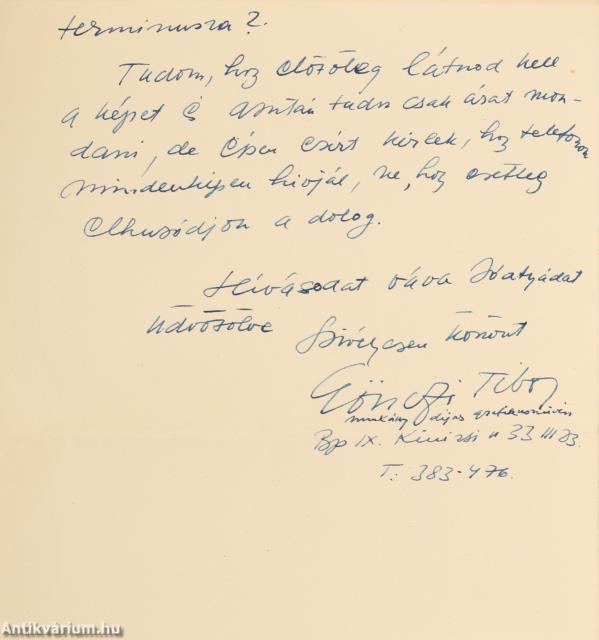 terminusra?
Tudom, hoz előzőleg látnod kell
a képet és azután tudsz csak árat mon-
dani, de épen ezért kérlek, hoz telefonon
mindenképen hívjál, ne, hoz esetleg
elhuzódjon a dolog.
Hívásodat várva Édatyádat
üdvözölve Szivélyesen köszönt
Gönczi Tibor
munkácsy díjas grafikusművész
Bp IX. Kinizsi u 33 III
T: 383-476.
Antikvárium.hu